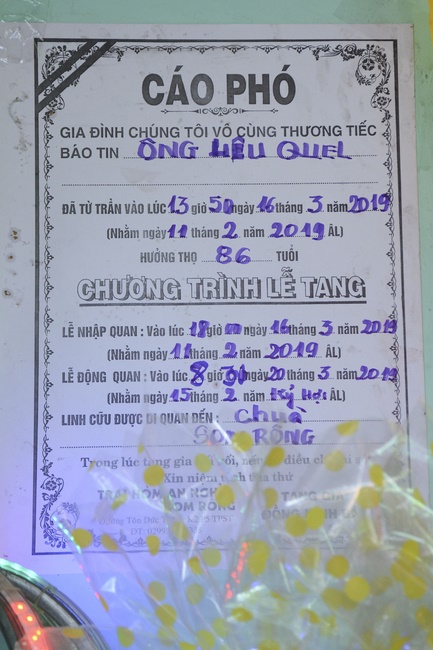 CÁO PHÓ
GIA ĐÌNH CHÚNG TÔI VÔ CÙNG THƯƠNG TIẾC
BÁO TIN ÔNG LIÊU QUEL
ĐÃ TỪ TRẦN VÀO LÚC 13 giờ 50 ngày 16 tháng 3 năm 2019
(Nhằm ngày 11 tháng 2 năm 2019 ÂL)
HƯỞNG THỌ 86 TUỔI
CHƯƠNG TRÌNH LỄ TANG
LỄ NHẬP QUAN : Vào lúc 18 giờ 00 ngày 16 tháng 3 năm 2019
(Nhằm ngày 11 tháng 2 năm 2019 ÂL)
LỄ ĐỘNG QUAN : Vào lúc 8 giờ ngày 20 tháng 3 năm 2019
(Nhằm ngày 15 tháng 2 năm Kỷ Hợi ÂL)
LINH CỮU ĐƯỢC DI QUAN ĐẾN : Chùa
SOM RÔNG
Trong lúc tang gia bối rối, nếu có điều chi sơ sót
Xin niệm tình tha thứ
TRẠI HÒM AN NGHỈ TANG GIA
SOM RONG ĐỒNG KÍNH BÁO
Đường Tôn Đức TPST
ĐT: